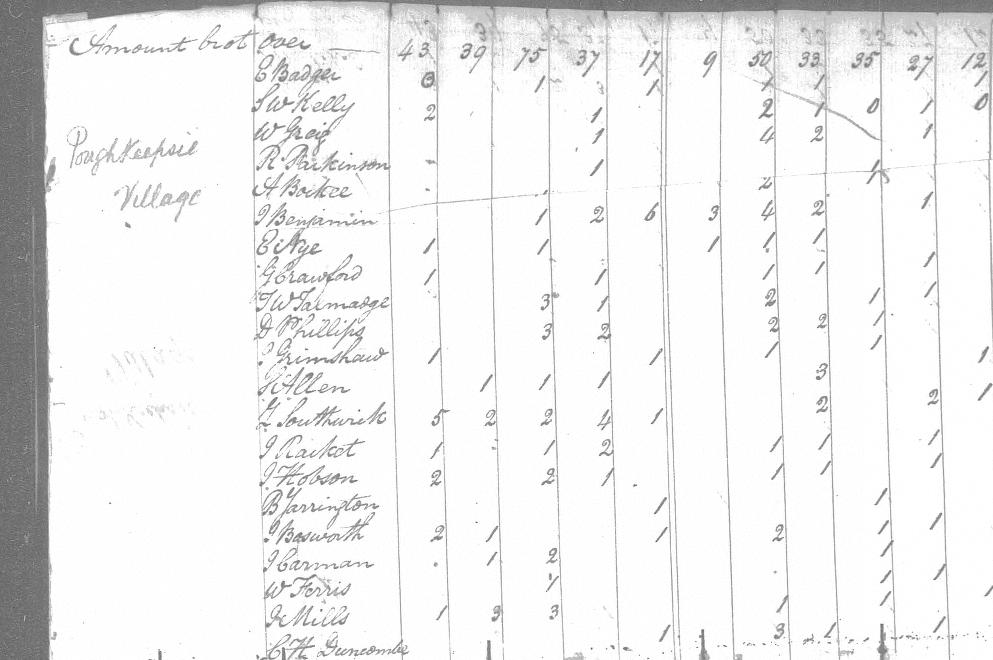 Amount brot over 43 39 75 37 17 9 50 33 35 27 12
E Badger 0 1 1 1 1 1
S W Kelly 2 1 2 1 0 1 0
W Greig 1 4 2 1
Poughkeepsie
R Parkinson 1 1
Village
A Boikee 2
J Benjamin 1 2 6 3 4 2 1
E Nye 1 1 1 1 1
G Crawford 1 1 1 1 1
T W Talmadge 3 1 2 1 1
D Phillips 3 2 2 2 1
J Grimshaw 1 1 1 1 1
G Allen 1 1 1 3 1
Z Southwick 5 2 2 4 1 2 2
J Racket 1 1 2 1 1 1
J Hobson 2 2 1 1 1 1
B Yarrington 1 1
J Bosworth 2 1 1 2 1 1
J Carman 1 2 1
W Ferris 1 1 1
J Mills 1 3 3 1 1 1
C H Duncombe 1 3 1 1